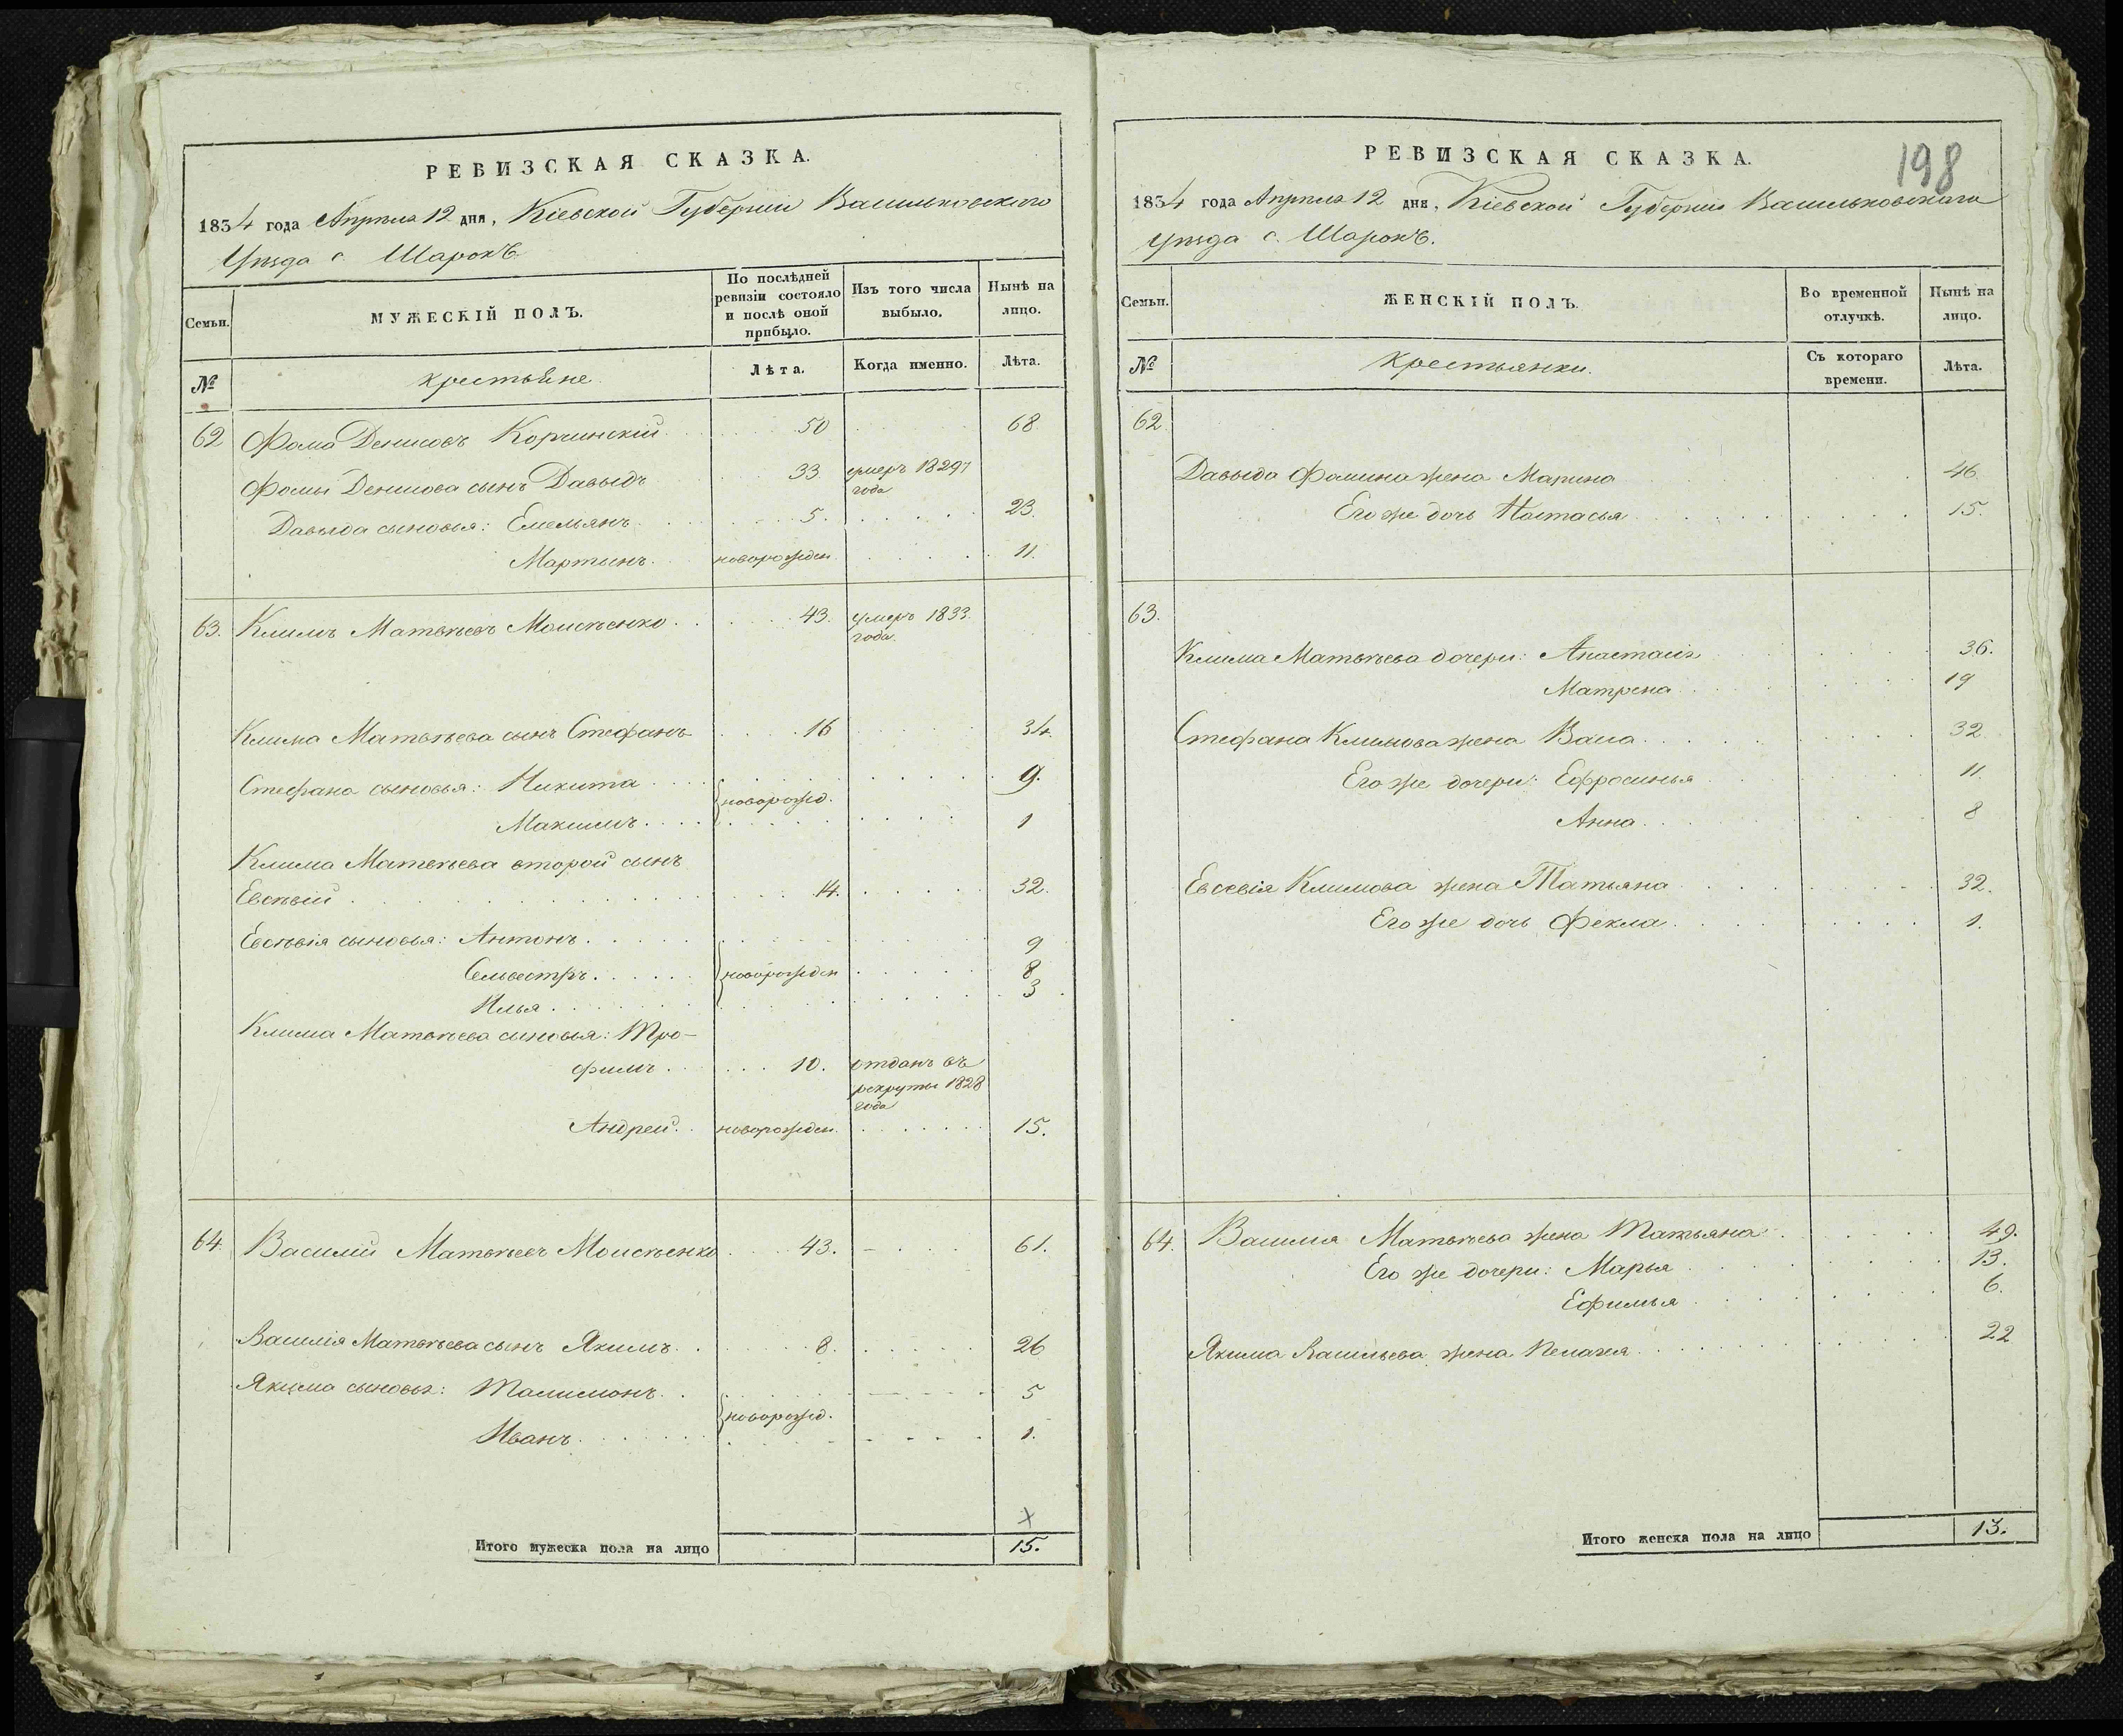 РЕВИЗСКАЯ СКАЗКА.
1834 года Апрѣля 12 дня, Кіевской Губерніи Васильковского
Уѣзда с. Шарокъ
Семьи.
МУЖЕСКІЙ ПОЛЪ.
По послѣдней ревизіи состояло и послѣ оной прибыло.
Изъ того числа выбыло.
Нынѣ на лицо.
№
крестьяне
Лѣта.
Когда именно.
Лѣта.
62 Фома Денисовъ Корчинскій 50 68
Фомы Денисова сынъ Давыдъ 33 умеръ 1829
года
Давыда сыновья: Емельянъ 5. 23.
Мартынъ новорожден 11.
63. Климъ Матвѣевъ Моисѣенко 43. умеръ 1833
года.
Клима Матвѣева сынъ Стефанъ 16 34.
Стефана сыновья: Никита 9.
новорожд.
Максимъ 1
Клима Матвѣева второй сынъ
Евсѣвій 14. 32.
Евсѣвія сыновья: Антонъ 9
Сельвестръ новорожден 8
Илья 3
Клима Матвѣева сыновья: Тро-
фимъ 10. отданъ въ
рекруты 1828
года
Андрей новорожден 15.
64. Василій Матвѣевъ Моисѣенко 43. 61.
Василія Матвѣева сынъ Якимъ 8. 26
Якима сыновья: Талимонъ 5
новорожд.
Иванъ 1.
Итого мужеска пола на лицо 15.
198
РЕВИЗСКАЯ СКАЗКА.
1834 года Апрѣля 12 дня, Кіевской Губерніи Васильковскаго
Уѣзда с. Шарокъ.
Семьи.
ЖЕНСКІЙ ПОЛЪ.
Во временной отлучкѣ.
Нынѣ на лицо.
№
крестьянки.
Съ котораго времени.
Лѣта.
62.
Давыда Фомина жена Марина 46.
Его же дочь Настасья 15.
63.
Клима Матвѣева дочери: Анастасія 36.
Матрена 19
Стефана Климова жена Васа 32
Его же дочери: Ефросинья 11.
Анна 8
Евсевія Климова жена Татьяна 32.
Его же дочь Фекла 1.
64. Василия Матвѣева жена Татьяна 49.
Его же дочери: Марья 13.
Ефимья 6.
Якима Васильева жена Пелагея 22
Итого женска пола на лицо 13.